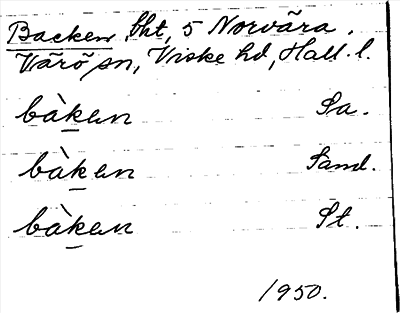 Backen, Lht, 5 Norvära.
Värö sn, Viske hd, Hall. l.
bàken Sa.
bàken Sand.
bàken St.
1950.